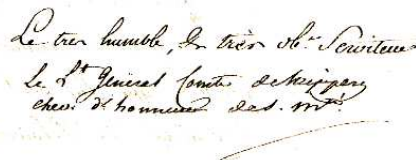 Le tres humble, & très ob.r Serviteur
le Lt général Comte de Neipperg
chev. d'honneur de s. m.té